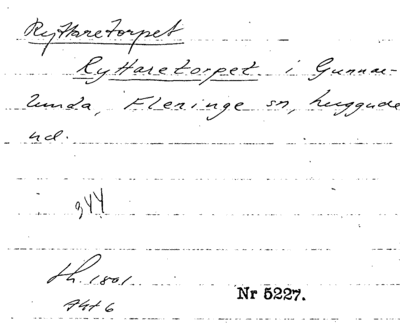 Ryttaretorpet
Ryttaretorpet i Gunnar-
lunda, Fleringe sn, Luggude
hd.
344
th. 1801
Nr 5227.